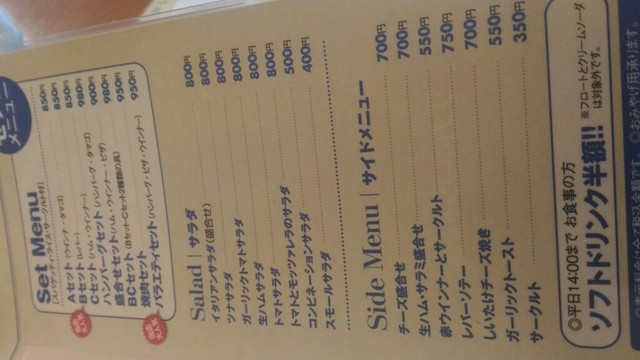 メニュー
Set Menu
(スパゲッティ・ライス・サラダ付)
Aセット(ウインナ・タマゴ) 850円
Bセット(レバー) 850円
Cセット(ハム・ウインナー) 850円
ハンバーグセット(ハンバーグ・タマゴ) 980円
盛合せセット(ハム・ウインナー・ピザ) 900円
BCセット(BセットCセット2種類の具) 980円
焼肉セット 950円
バラエティセット(ハンバーグ・ピザ・ウインナー) 950円
Salad | サラダ
イタリアンサラダ(盛合せ) 800円
ツナサラダ 800円
ガーリックトマトサラダ 800円
生ハムサラダ 800円
トマトサラダ 800円
トマトとモッツァレラのサラダ 800円
コンビネーションサラダ 500円
スモールサラダ 400円
Side Menu | サイドメニュー
チーズ盛合せ 700円
生ハム・サラミ盛合せ 700円
赤ウインナーとザークルト 550円
レバーソテー 750円
しいたけチーズ焼き 700円
ガーリックトースト 550円
ザークルト 350円
◎平日14:00まで お食事の方
ソフトドリンク半額!!
※フロートとクリームソーダ
は対象外です。